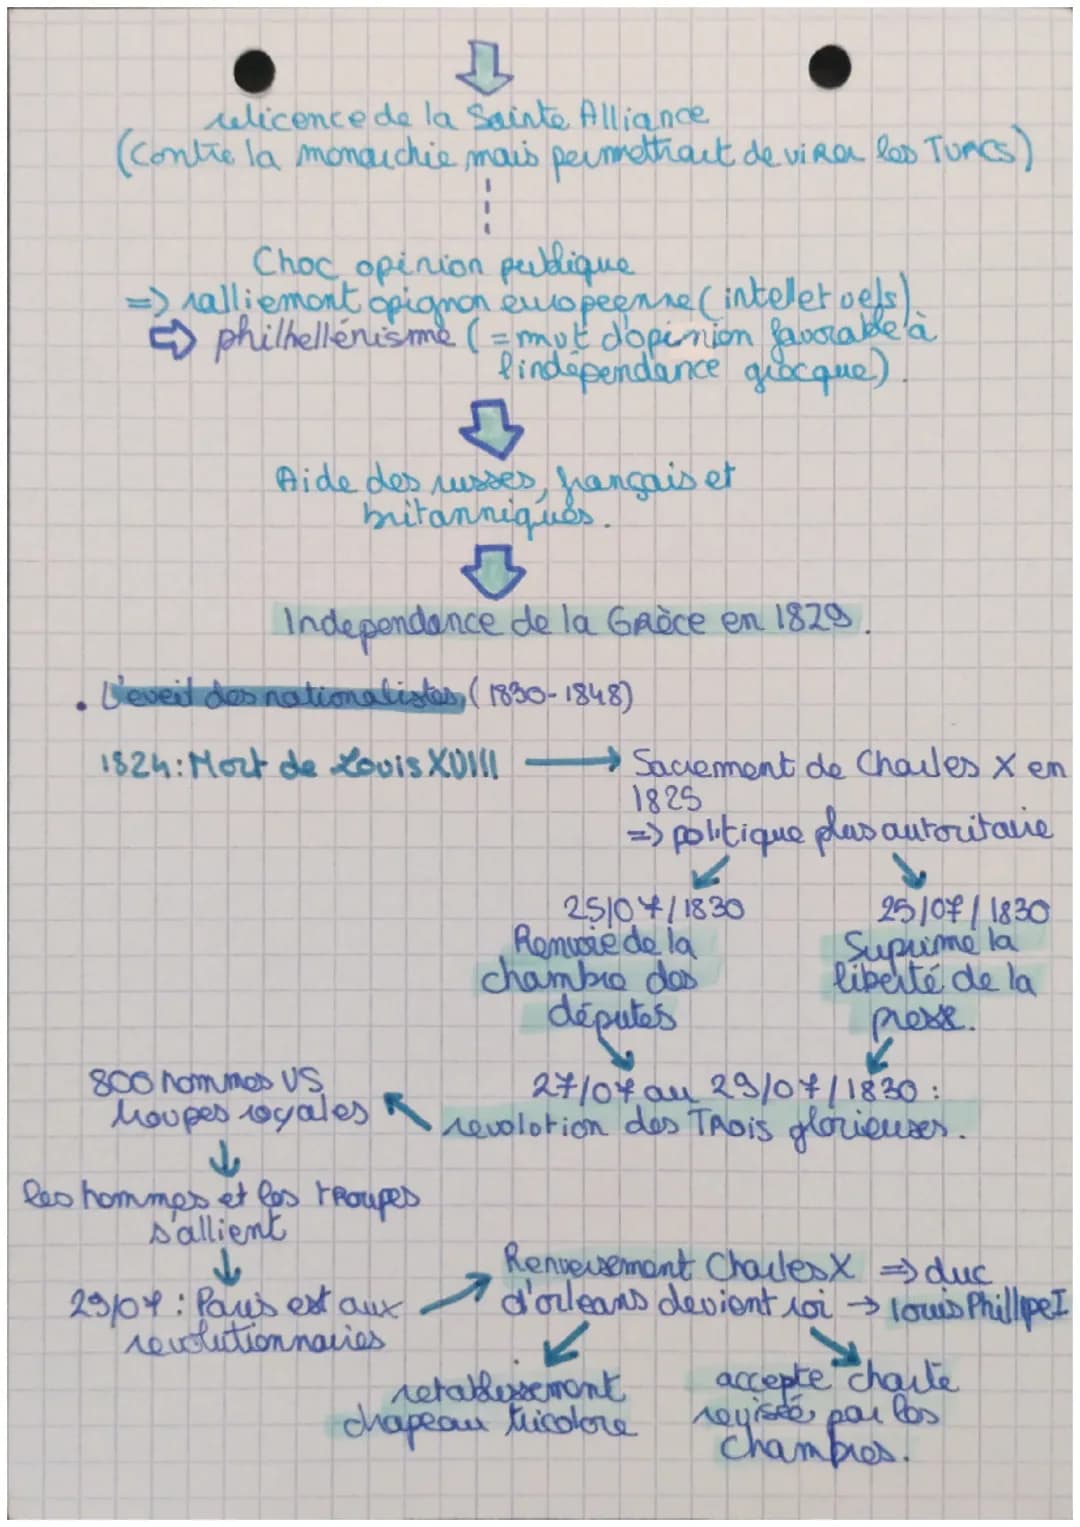 relicence de la Sainte Alliance
(Contre la monarchie mais permettrait de virer les Turcs)
Choc opinion publique
=> ralliement opignon europeenne (intelletuels)
⇨ philhellénisme (= mvt d'opinion favorable à
l'indépendance grecque).
Aide des russes, français et
britanniques.
Independance de la Grèce en 1829.
• L'eveil des nationalistes, (1830-1848)
1824: Mort de Louis XVIII → Sacrement de Charles X en
1825
=> politique plus autoritaire
25/07/1830 25/07/1830
Renvoie de la Suprime la
chambre des liberté de la
députés presse.
800 hommes VS 27/07 au 29/07/1830 :
troupes royales revolotion des Trois glorieuses.
les hommes et les troupes
s'allient
Renversement Charles X => duc
29/07 : Paris est aux d'orleans devient roi → louis Phillipe I
revolutionnaires
retablissement accepte charte
chapeau tricolore revisée par les
chambres.